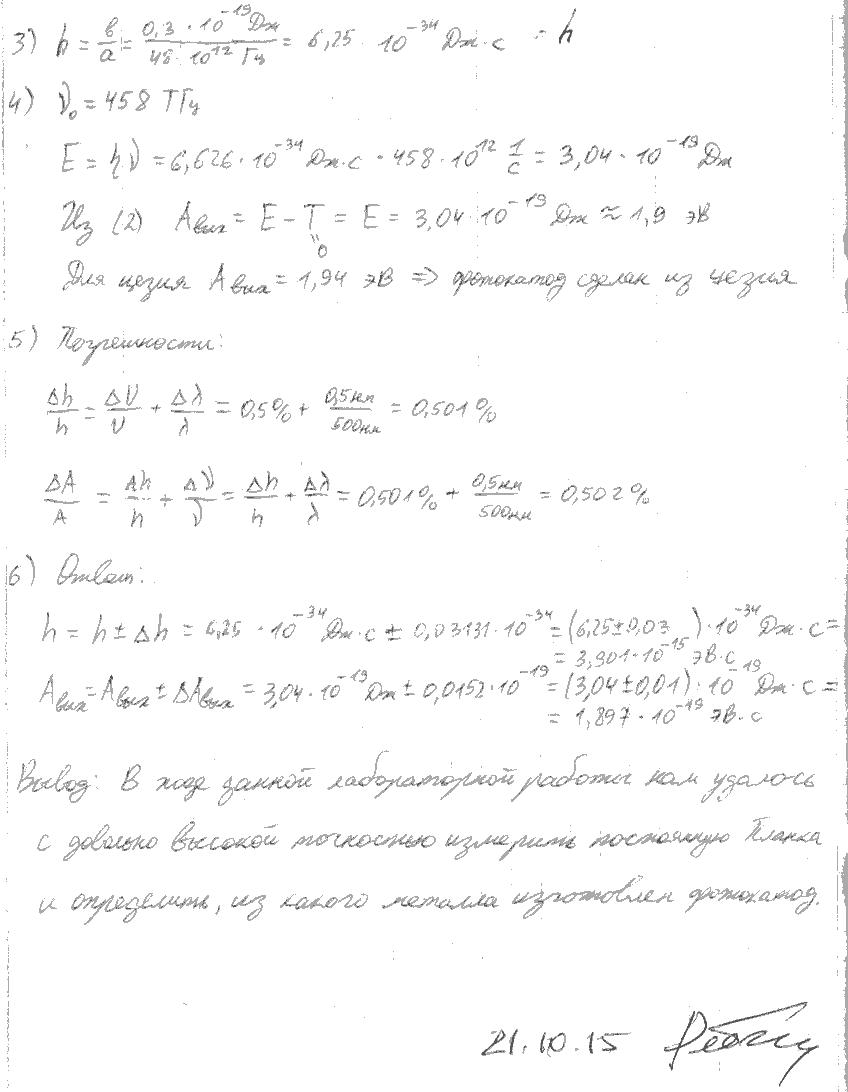 3) h = в/a = 0,3 · 10⁻¹⁹ Дж / 48 · 10¹² Гц = 6,25 · 10⁻³⁴ Дж·с = h
4) ν₀ = 458 ТГц
E = hν = 6,626 · 10⁻³⁴ Дж·с · 458 · 10¹² 1/с = 3,04 · 10⁻¹⁹ Дж
Из (2) Aвых = E − T = E = 3,04 · 10⁻¹⁹ Дж ≈ 1,9 эВ
"0
Для цезия Aвых = 1,94 эВ => фотокатод сделан из цезия
5) Погрешности:
Δh/h = ΔU/U + Δλ/λ = 0,5% + 0,5нм/500нм = 0,501%
ΔA/A = Δh/h + Δν/ν = Δh/h + Δλ/λ = 0,501% + 0,5нм/500нм = 0,502%
6) Ответ:
h = h ± Δh = 6,25 · 10⁻³⁴ Дж·с ± 0,03131 · 10⁻³⁴ = (6,25 ± 0,03) · 10⁻³⁴ Дж·с =
= 3,901 · 10⁻¹⁵ эВ·с
Aвых = Aвых ± ΔAвых = 3,04 · 10⁻¹⁹ Дж ± 0,0152 · 10⁻¹⁹ = (3,04 ± 0,01) · 10⁻¹⁹ Дж·с =
= 1,897 · 10⁻¹⁹ эВ·с
Вывод: В ходе данной лабораторной работы нам удалось
с довольно высокой точностью измерить постоянную Планка
и определить, из какого металла изготовлен фотокатод.
21.10.15